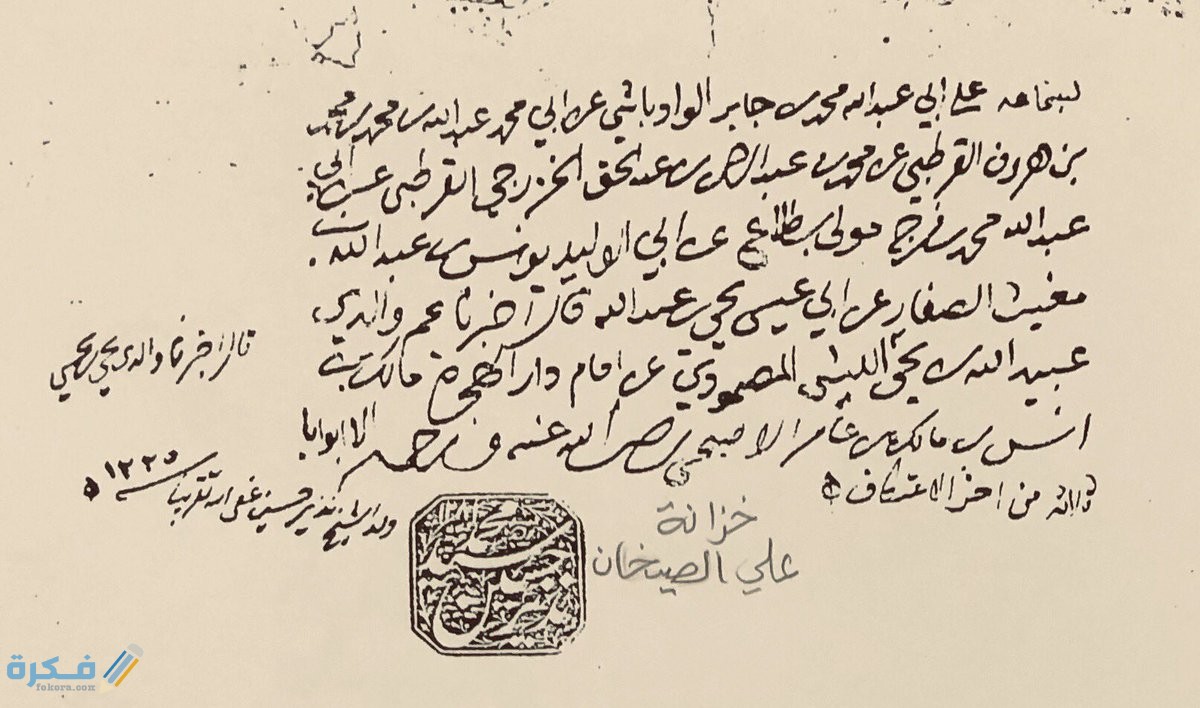 بسماعه على أبي عبد الله محمد بن جابر الوادياشي عن أبي محمد عبد الله بن محمد بن محمد
بن هرون القرطبي عن محمد بن عبد الحق الخزرجي القرطبي عن أبي
عبد الله محمد بن فرج مولى بن طلاع عن أبي الوليد يونس بن عبد الله بن
مغيث الصفار عن أبي عيسى يحيى بن عبد الله قال أخبرنا عم والدي
عبيد الله بن يحيى الليثي المصمودي عن امام دار الهجرة مالك بن
انس بن مالك بن عامر الاصبحي رضي الله عنه ورحمه الا ابوابا
ثلاثة من اخر الاعتكاف
قال اخبرنا والدي يحيى بن يحيى
ولد الشيخ نذير حسين غفر له تقريبا سنه ١٢٢٥
خزانة
علي الصيخان
١٢٨١
سيد محمد نذير حسين
فكرة
fekera.com